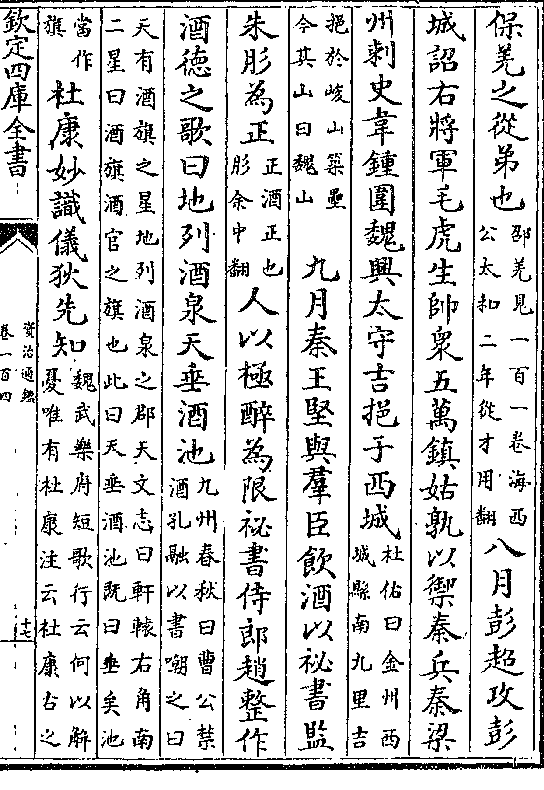 保羌之從弟也邵羌見一百一卷海西公太和二年從才用翻八月彭超攻彭
城詔右將軍毛虎生帥衆五萬鎮姑孰以禦秦兵秦梁
州刺史韋鍾圍魏興太守吉挹于西城杜佑曰金州西城縣南九里吉
挹於峻山築壘今其山曰魏山九月秦王堅與羣臣飲酒以祕書監
朱肜為正正酒正也肜余中翻人以極醉為限祕書侍郎趙整作
酒德之歌曰地列酒泉天垂酒池九州春秋曰曹公禁酒孔融以書嘲之曰
天有酒旗之星地列酒泉之郡天文志曰軒轅右角南二星曰酒旗酒官之旗也此曰天垂酒池既曰垂矣池
當作旗杜康妙識儀狄先知魏武樂府短歌行云何以解憂唯有杜康注云杜康古之
欽定四庫全書
資治通鑑
卷一百四
十七